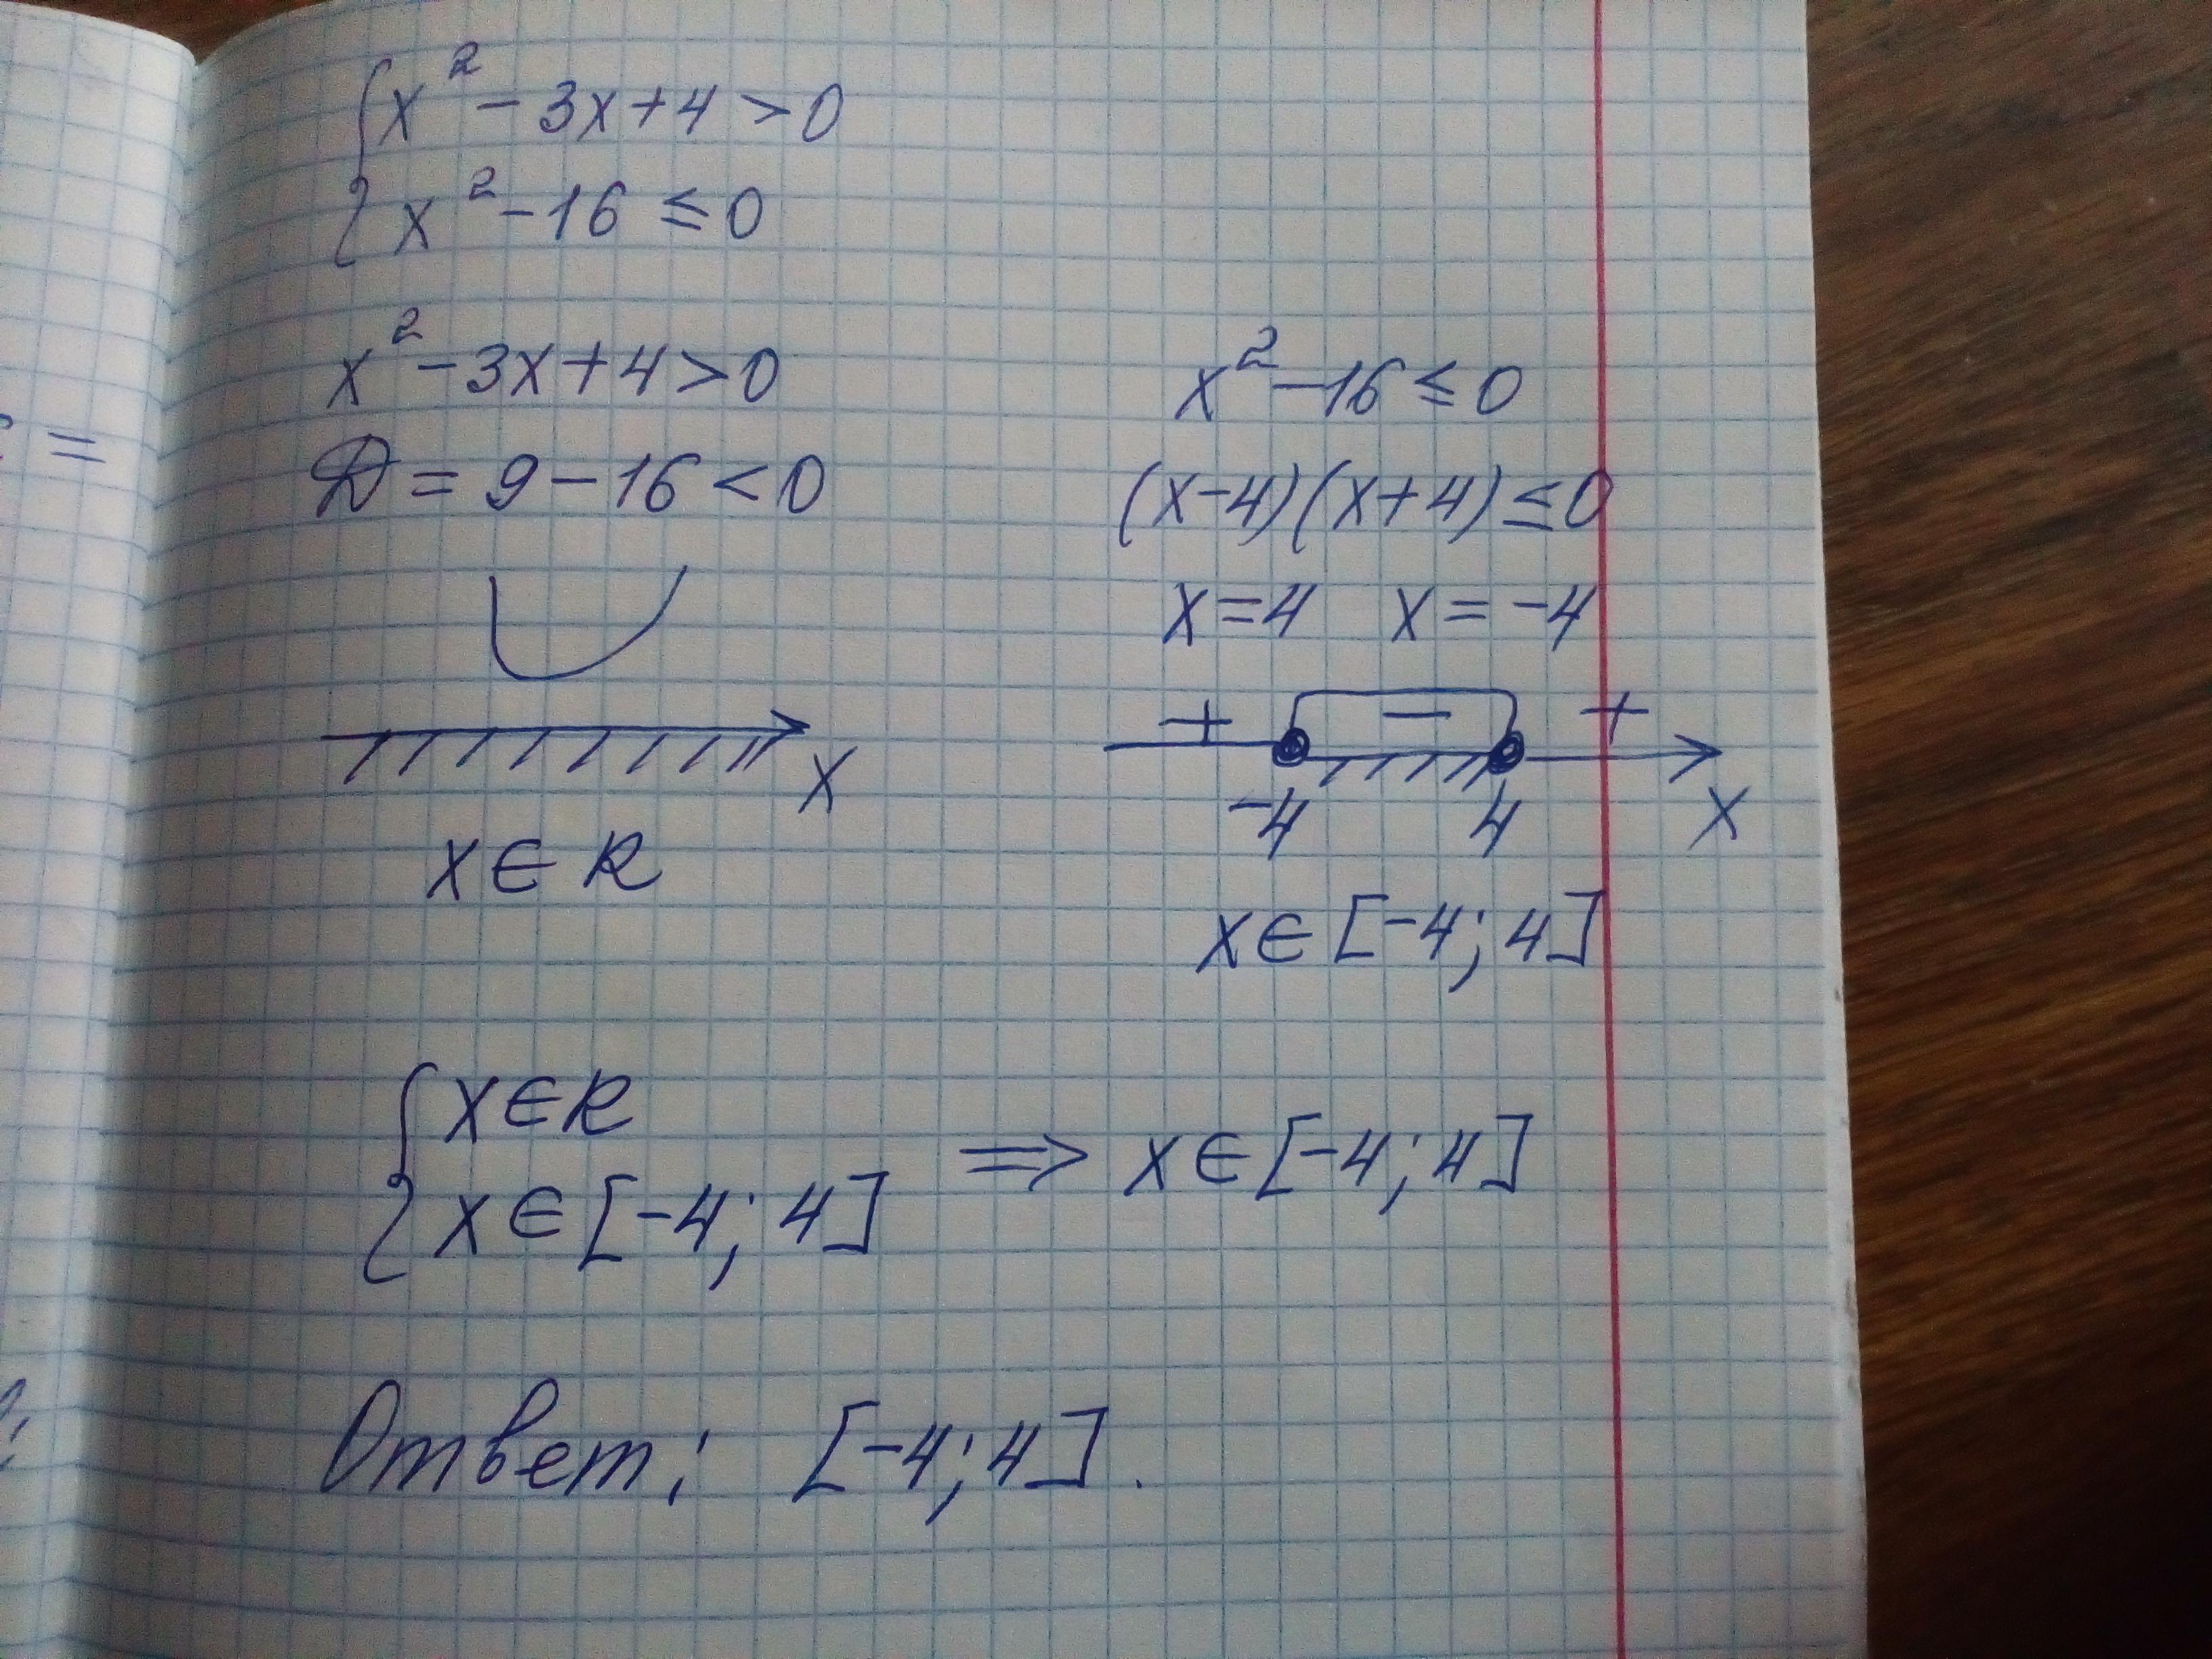 { x² - 3x + 4 > 0
x² - 16 ≤ 0
x² - 3x + 4 > 0
D = 9 - 16 < 0
x
x ∈ R
x² - 16 ≤ 0
(x-4)(x+4) ≤ 0
x = 4 x = -4
+ - +
-4 4 x
x ∈ [-4; 4]
{ x ∈ R
x ∈ [-4; 4] ⇒ x ∈ [-4; 4]
Ответ: [-4; 4].
=